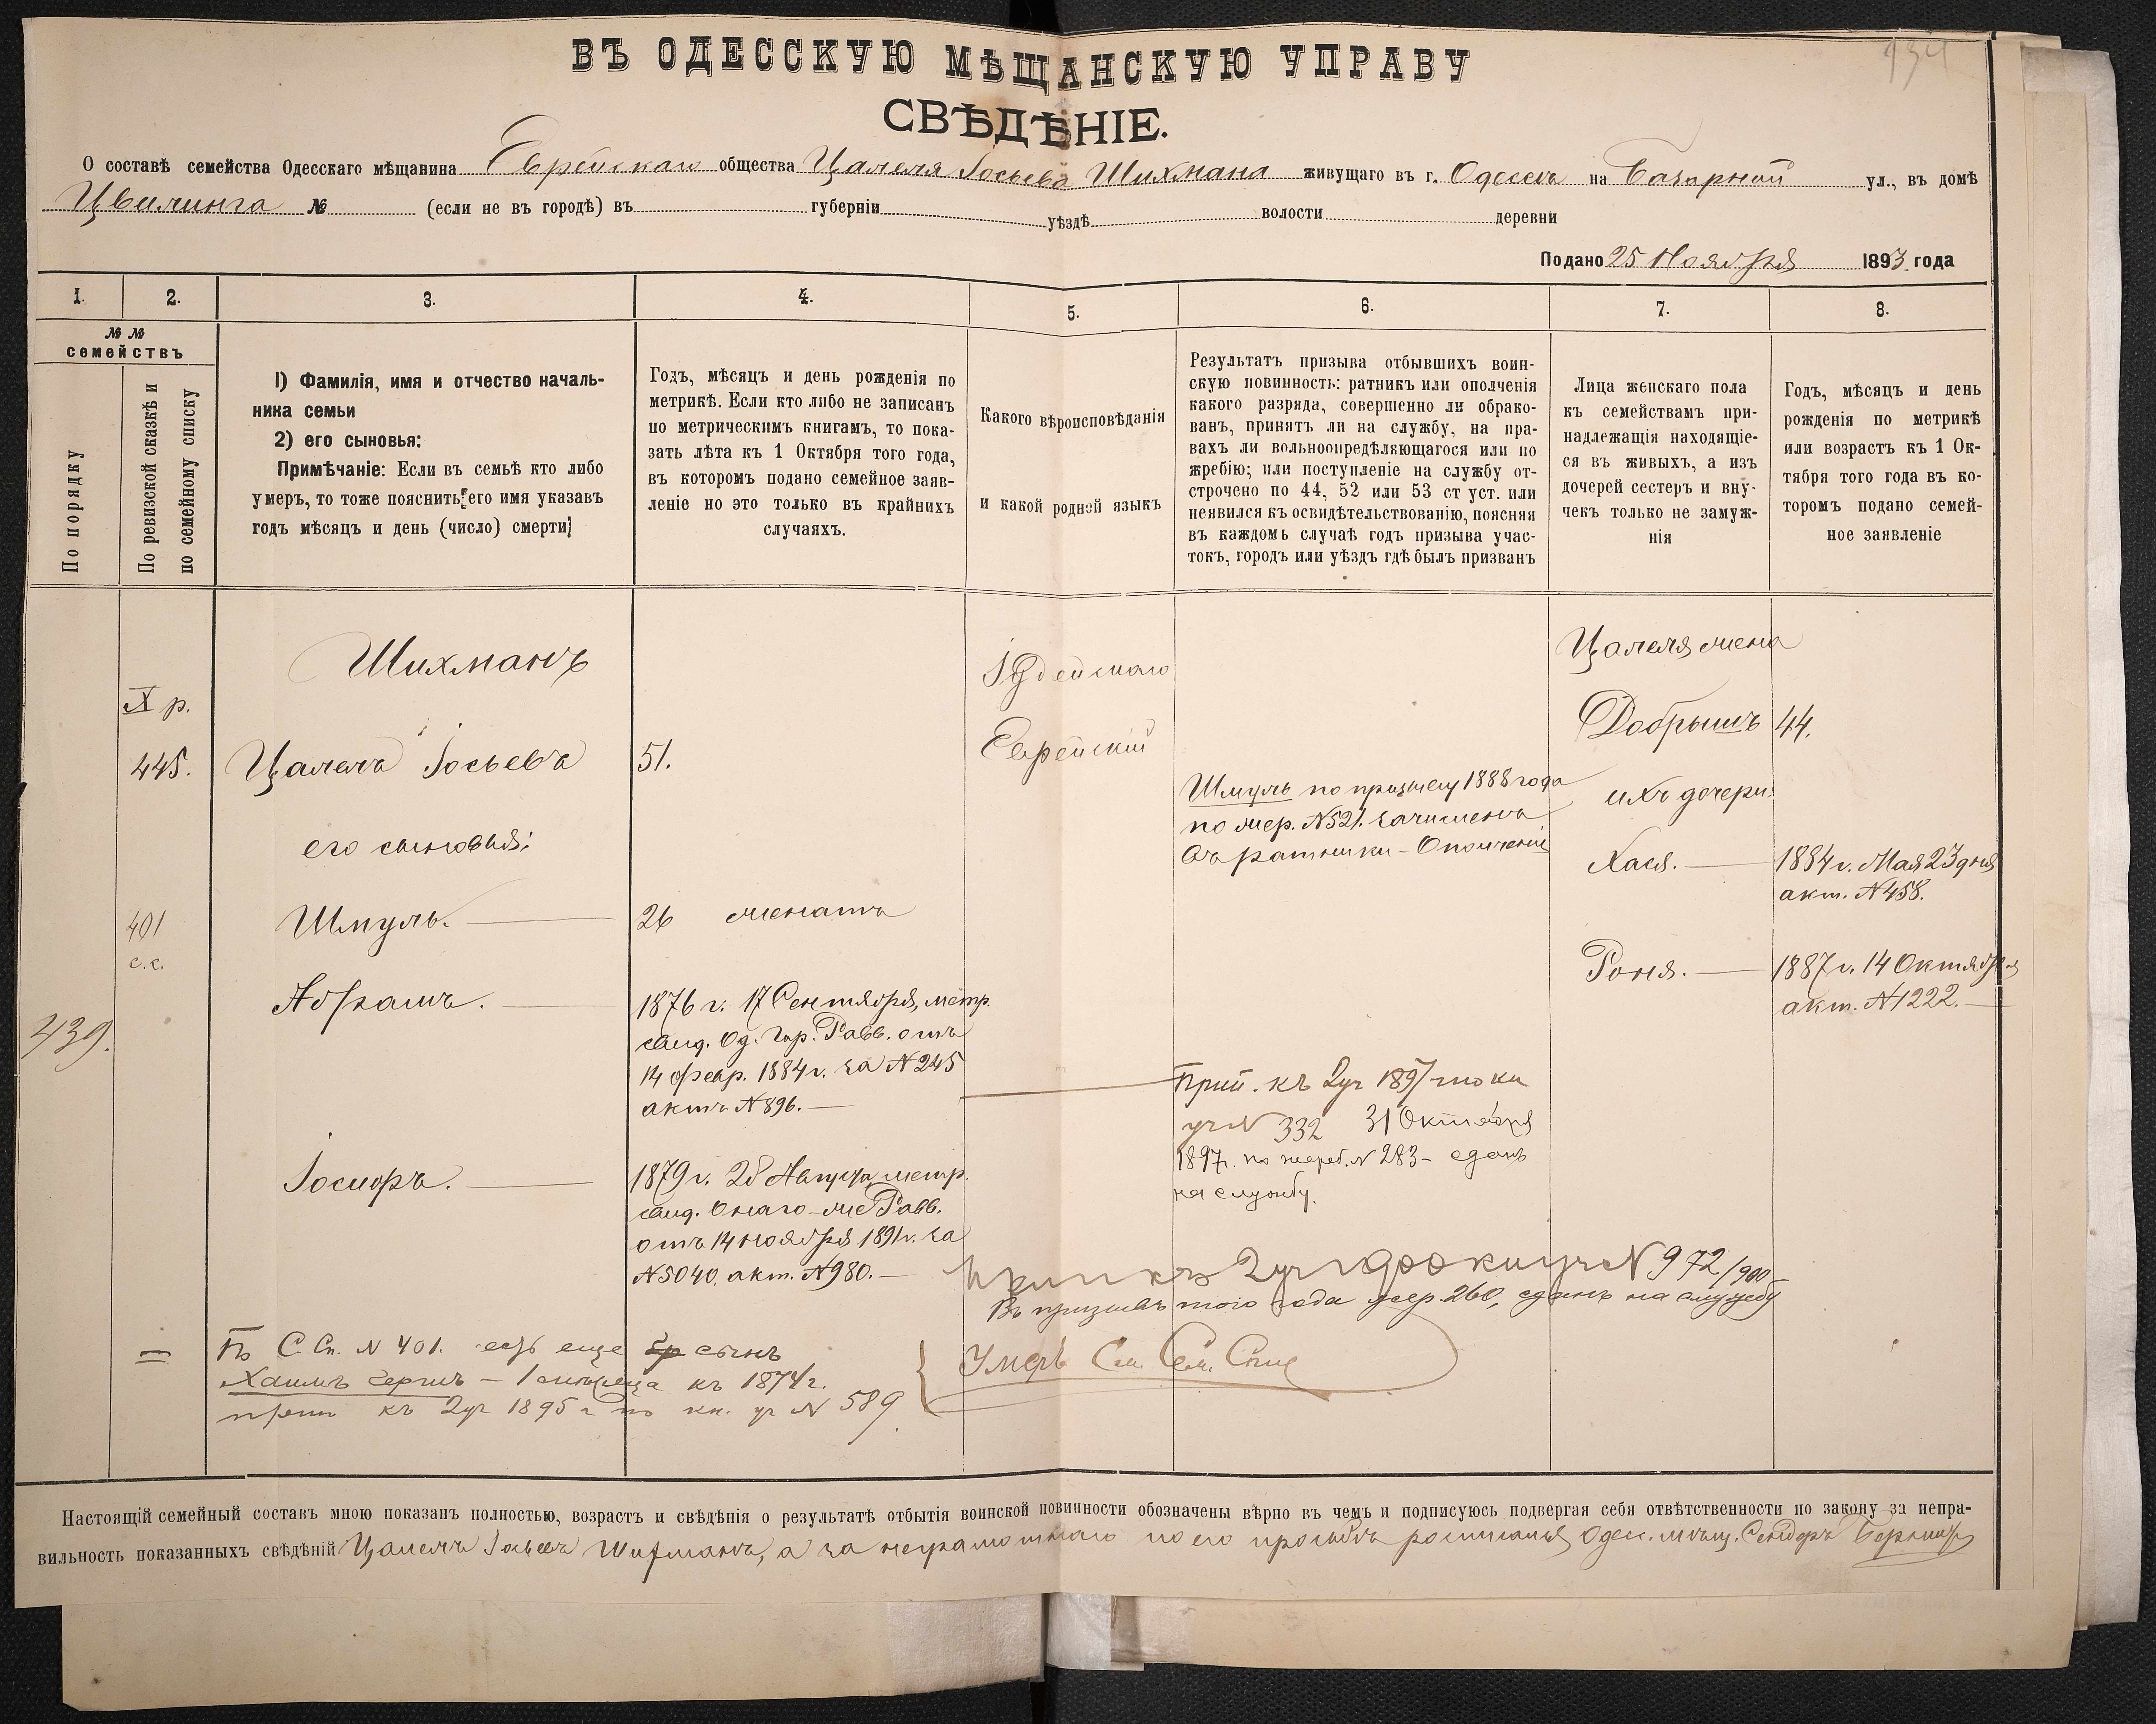 934
ВЪ ОДЕССКУЮ МѢЩАНСКУЮ УПРАВУ
СВѢДѢНІЕ.
О составѣ семейства Одесскаго мѣщанина Еврейскаго общества Цалеля Іосьева Шихмана живущаго въ г. Одессѣ на Базарной ул., въ домѣ
Цвилинга № (если не въ городѣ) въ губерніи уѣздѣ волости деревни
Подано 25 Ноября 1893 года
1. 2. 3. 4. 5. 6. 7. 8.
№ №
семействъ
По порядку
По ревизской сказкѣ и
по семейному списку
1) Фамилія, имя и отчество началь-
ника семьи
2) его сыновья:
Примѣчаніе: Если въ семьѣ кто либо
умеръ, то тоже пояснить его имя указавъ
годъ мѣсяцъ и день (число) смерти
Годъ, мѣсяцъ и день рожденія по
метрикѣ. Если кто либо не записанъ
по метрическимъ книгамъ, то пока-
зать лѣта къ 1 Октября того года,
въ которомъ подано семейное заяв-
леніе но это только въ крайнихъ
случаяхъ.
Какого вѣроисповѣданія
и какой родной языкъ
Результатъ призыва отбывшихъ воин-
скую повинность: ратникъ или ополченія
какого разряда, совершенно ли обрако-
ванъ, принятъ ли на службу, на пра-
вахъ ли вольноопредѣляющагося или по
жребію; или поступленіе на службу от-
строчено по 44, 52 или 53 ст уст. или
неявился къ освидѣтельствованію, поясняя
въ каждомъ случаѣ годъ призыва учас-
токъ, городъ или уѣздъ гдѣ былъ призванъ
Лица женскаго пола
къ семействамъ при-
надлежащія находящіе-
ся въ живыхъ, а изъ
дочерей сестеръ и вну-
чекъ только не замуж-
нія
Годъ, мѣсяцъ и день
рожденія по метрикѣ
или возрастъ къ 1 Ок-
тября того года въ ко-
торомъ подано семей-
ное заявленіе
Шихманъ
Іудейскаго
Цалеля жена
X р.
Добрышъ 44.
445. Цалель Іосьевъ 51.
Еврейскій
Шмуль по призыву 1888 года
по жер. №521. зачисленъ
въ ратники-Ополченія
ихъ дочери:
его сыновья:
Хася. — 1884 г. Мая 23 дня
акт. №458.
401 Шмуль. — 26 женатъ
с.с.
Роня. — 1887 г. 14 Октября
акт. №1222. —
Абрамъ. — 1876 г. 17 Сентября, метр.
свид. Од. Гор. Равв. отъ
14 февр. 1884 г. за №245
актъ №896. —
439.
Прип. къ 2уч 1897 по кн
уч № 332 31 Октября
1897г. по жереб. № 283 - сданъ
на службу.
Іосифъ. — 1879 г. 28 Августа метр.
свид. Онаго-же Равв.
отъ 14 ноября 1891 г. за
№5040. акт. №980. —
Прип къ 2уч 1900 кн уч № 972/900
Въ призывъ того года жер. 260, сданъ на службу
Въ С. Сп. № 401. есть еще сынъ
Хаимъ Гершъ — 1 къ 1874 г.
прип къ 2уч 1895 г по кн. уч № 589
Умеръ См. Сем. Спис
Настоящій семейный составъ мною показанъ полностью, возрастъ и свѣдѣнія о результатѣ отбытія воинской повинности обозначены вѣрно въ чемъ и подписуюсь подвергая себя отвѣтственности по закону за непра-
вильность показанныхъ свѣдѣній Цалель Іосьевъ Шихманъ, а за неграмотнаго по его просьбѣ росписался Одес. мѣщ. Сендеръ